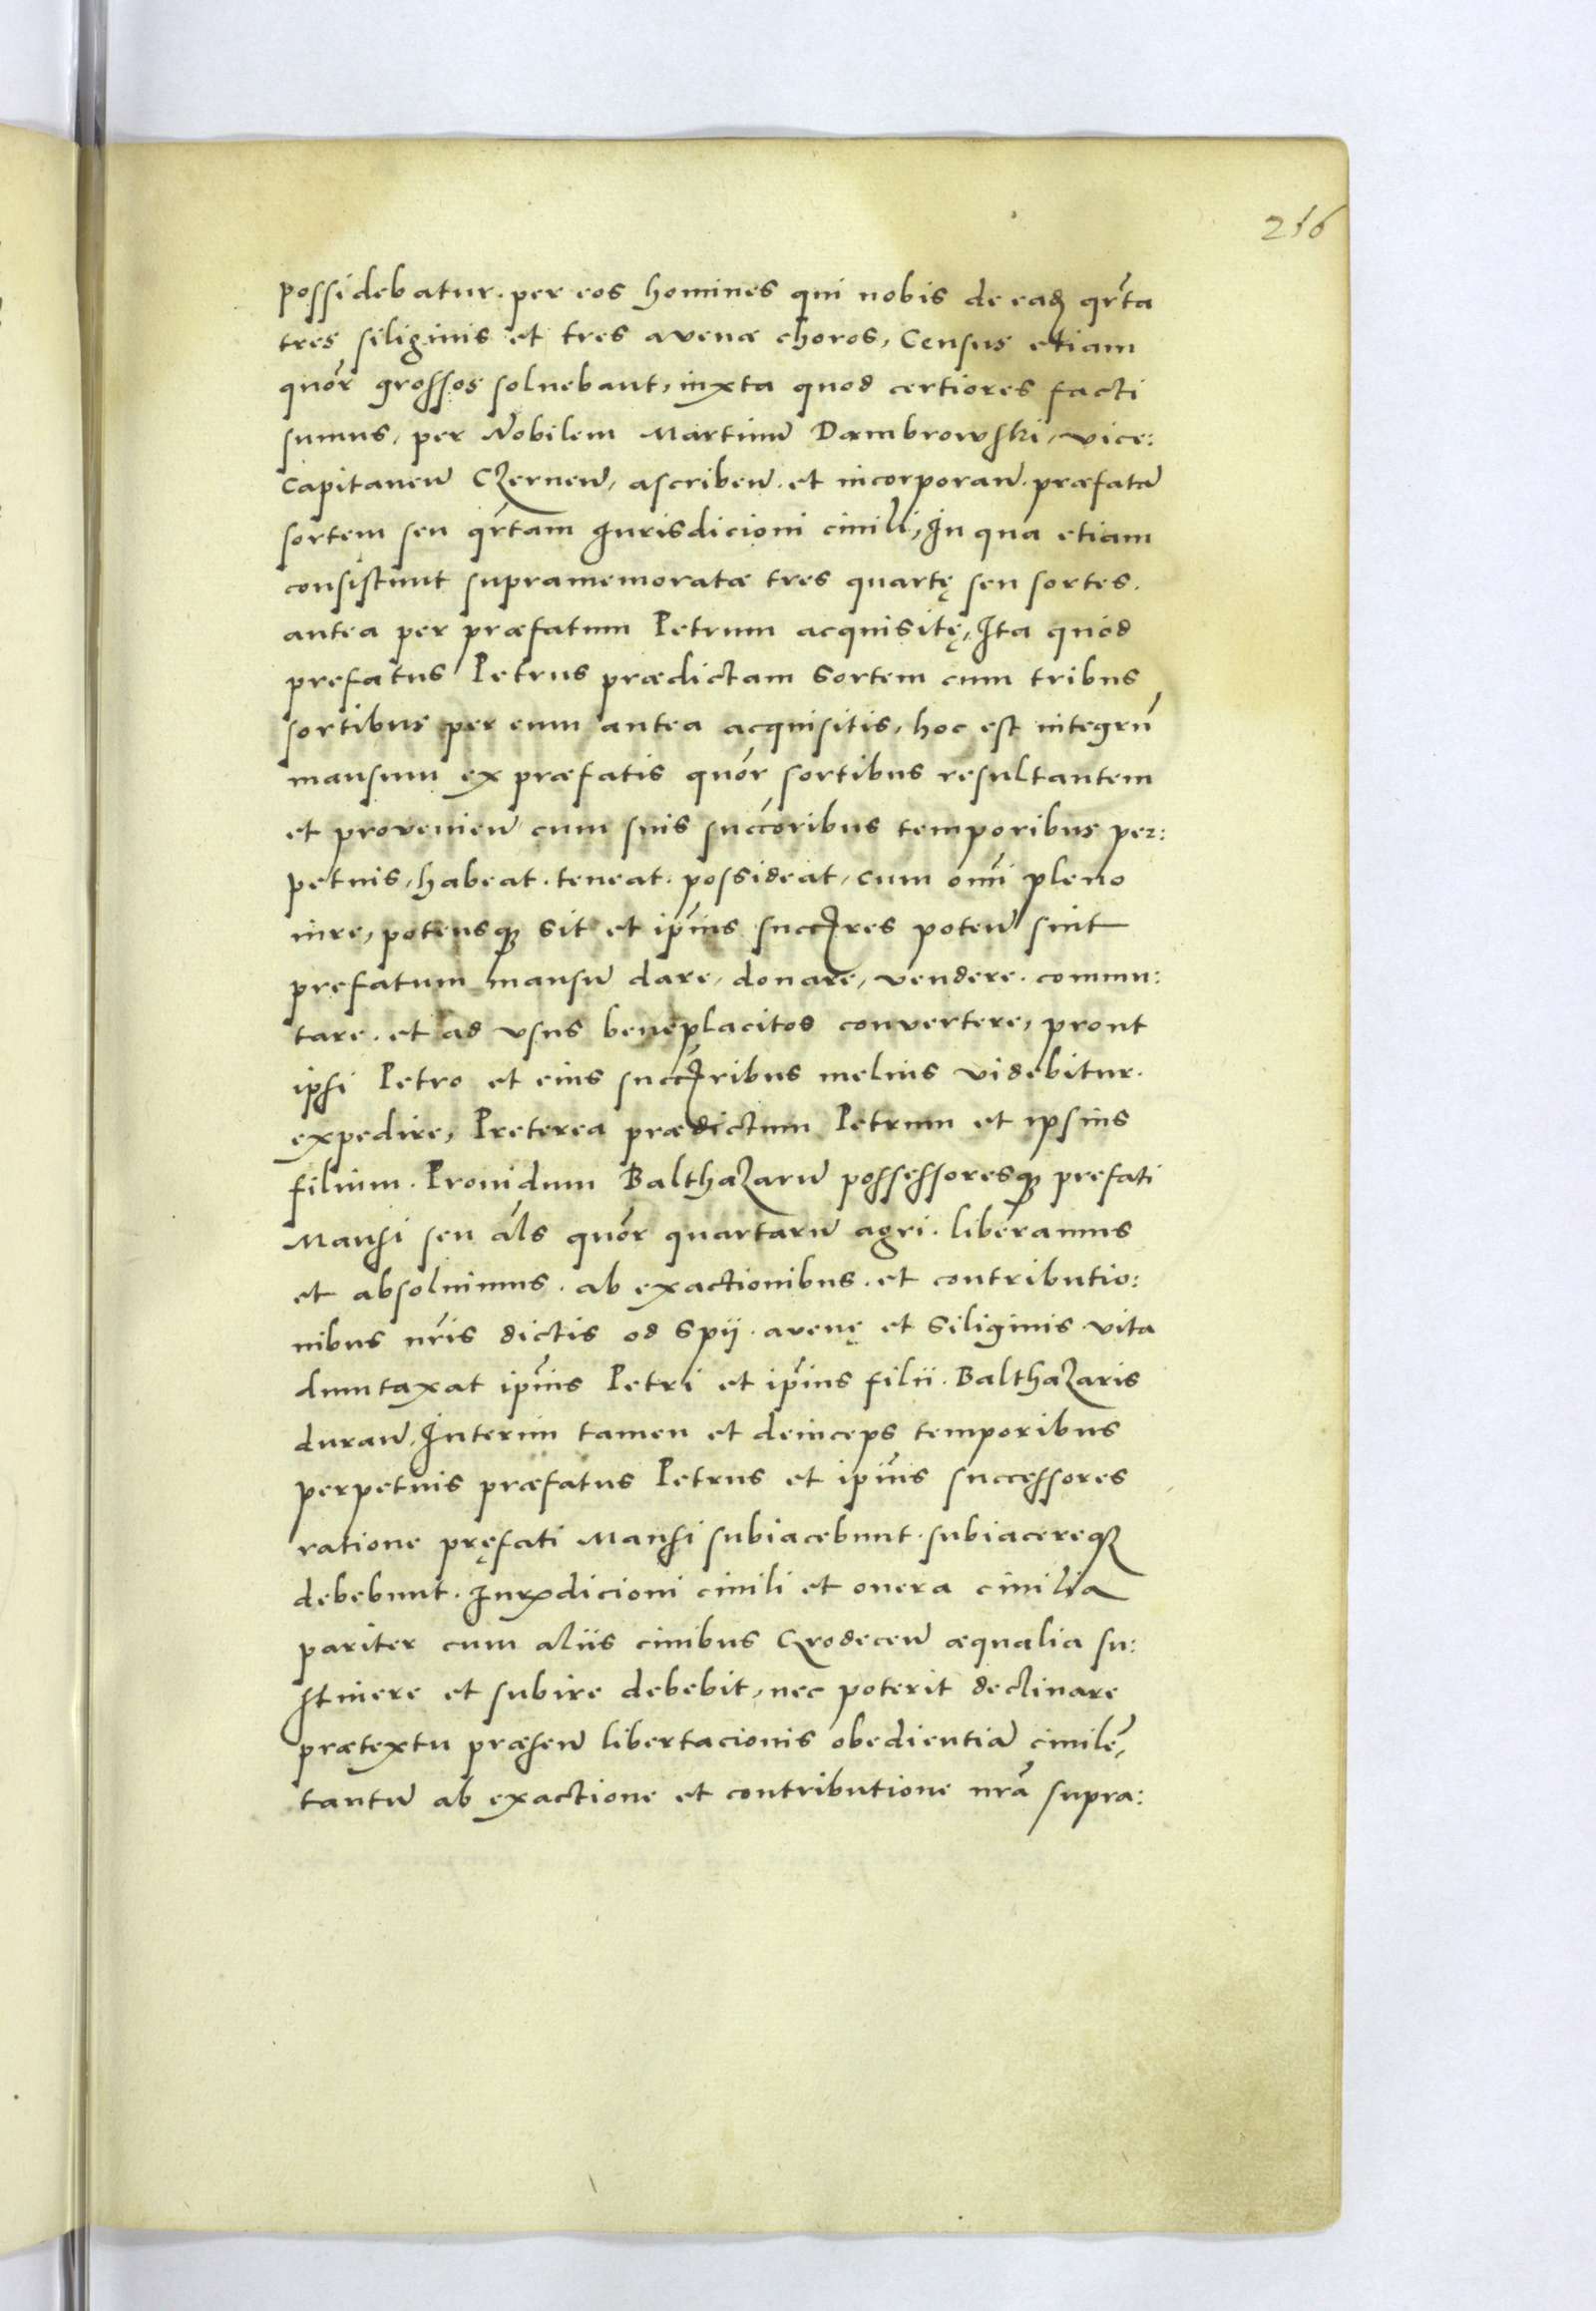 216
possidebatur. per eos homines qui nobis de eadē qr̃ta
tres siliginis et tres avenæ choros, Census etiam
quōr grossos soluebant, iuxta quod certiores facti
sumus, per Nobilem Martinū Dambrowski, vice:
capitaneū Czerneñ, ascribeñ. et incorporañ. præfatā
sortem seu qr̃tam Jurisdicioni ciuili, In qua etiam
consistunt supramemoratæ tres quartę seu sortes.
antea per præfatum Petrum acquisitę, Ita quod
prefatus Petrus prædictam sortem cum tribus
sortibus per eum antea acquisitis, hoc est integrū
mansum ex præfatis quōr sortibus resultantem
et provenieñ cum suis succōribus temporibus per:
petuis, habeat. teneat. possideat, cum om̄i pleno
iure, potensq; sit et ip̄ius succr̄es poteñ sint
prefatum mansū dare, donare, vendere. commu:
tare. et ad vsus beneplacitos convertere, prout
ipsi Petro et eius succr̄ibus melius videbitur.
expedire, Preterea prædictum Petrum et ipsius
filium. Prouidum Balthazarū possessoresq; prefati
Mansi seu al̄s quōr quartarū agri. liberamus
et absoluimus. ab exactionibus. et contributio:
nibus nr̄is dictis od Spij. avenę et Siliginis vita
dumtaxat ip̄ius Petri et ip̄ius filii. Balthazaris
durañ, Interim tamen et deinceps temporibus
perpetuis præfatus Petrus et ip̄ius successores
ratione pręfati Mansi subiacebunt. subiacereq;
debebunt. Jurisdicioni ciuili et onera ciuilia
pariter cum aliis ciuibus Grodeceñ æqualia su:
stinere et subire debebit, nec poterit declinare
prætextu præseñ libertacionis obedientiā ciuilē,
tantū ab exactione et contributione nr̄a supra: